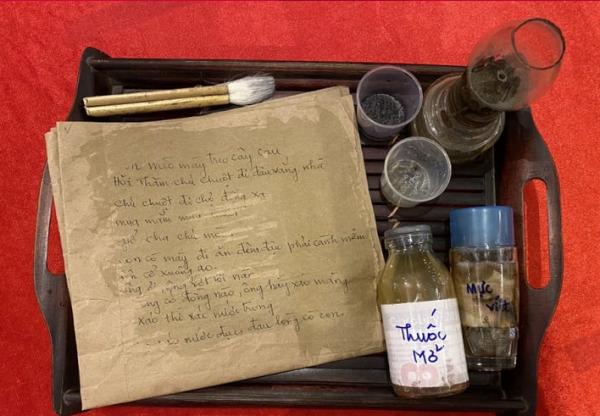 mèo mày treo cây cau
Hỏi thăm chú chuột đi đâu vắng nhà
chú chuột đi chợ đồng xa
mua mắm mua
giỗ cha chú mè
con cò mày đi ăn đêm đậu phải cành mềm
cổ xuống ao.
vớt tôi nao
có lòng nào, ông hãy xáo măng
xáo thì xáo nước trong
nước đục đau lòng cò con.
Thuốc
Mờ
Mực
viết